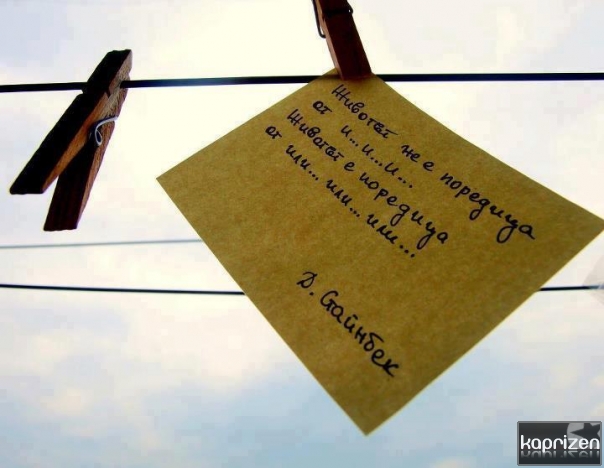 Животът не е поредица
от и... и... и...
Животът е поредица
от или... или... или...
Д. Стайнбек
kaprizen